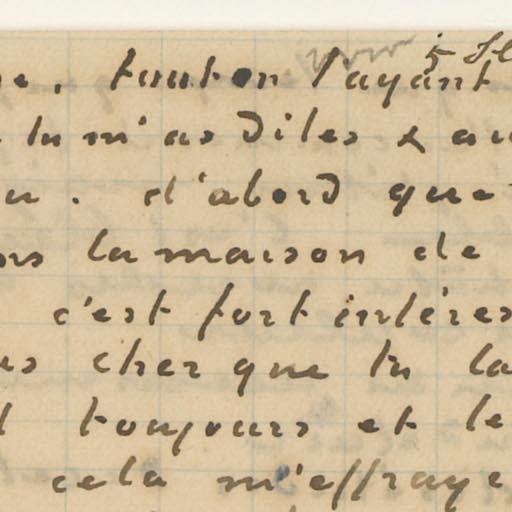 tanton l'ayant
tu m'as dites & au
d'abord que
la maison de
c'est fort intéres
cher que tu la
toujours et le
cela m'effraye